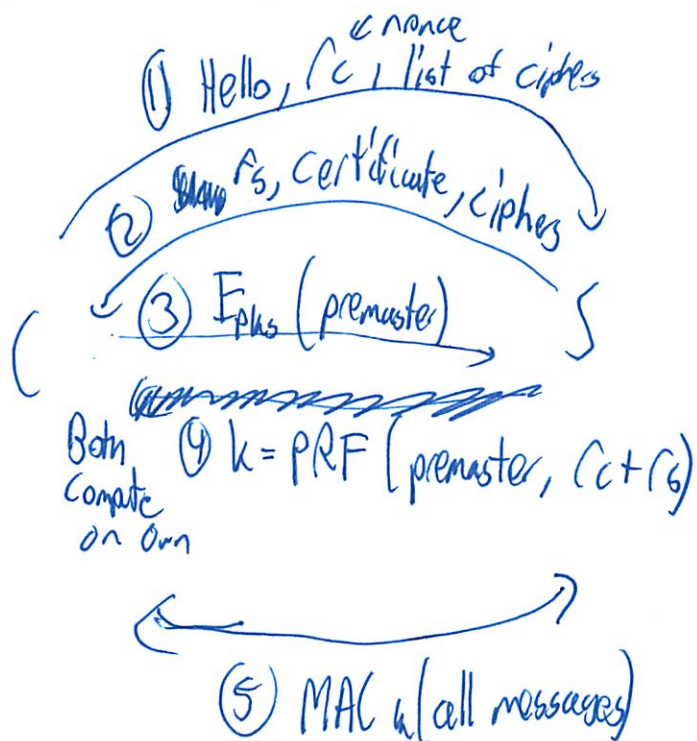 ← nonce
① Hello, rc, list of ciphers
② rs, certificate, ciphers
③ E (premaster)
C S
Both
Compute
on own
④ k = PRF (premaster, rc + rs)
⑤ MAC k (all messages)